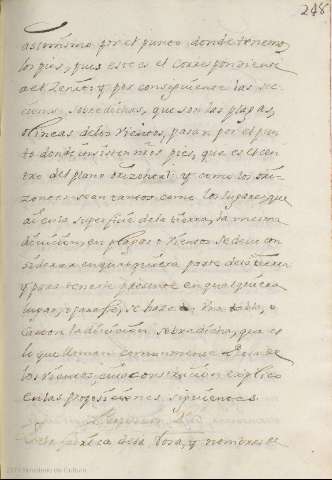 248
asimismo por el punto donde tenemos
los pies, pues este es el correspondiente
a el Zenit; y por consiguiente las sec
ciones sobredichas, que son las plagas,
ò lineas delos Vientos, pasan por el pun
to donde insisten nros pies, que es el cen
tro del plano orizontal; y como los ori-
zontes sean tantos, como los lugares, que
ai en la superficie dela tierra, la mesma
division, en plagas o Vientos se deve con
siderar en qualquiera parte dela tierra
y para tenerla presente en qualquiera
lugar, se haze en Una tabla, o
carton la division sobredicha, que es
lo que llaman comunmente Rosa de
los Vientos, cuia construccion explico
en las proposiciones siguientes.
fabrica dela Rosa, y nombres de
Ministerio de Cultura